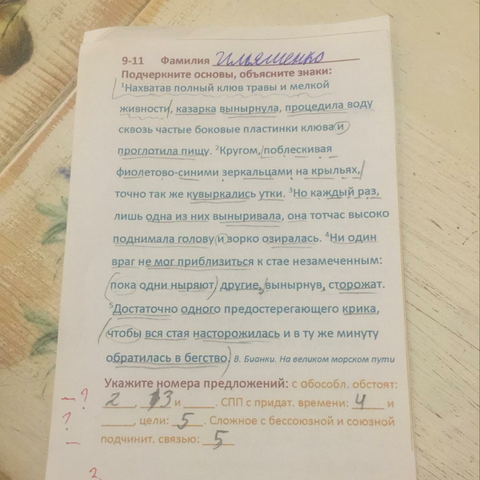 9-11 Фамилия Ильяшенко
Подчеркните основы, объясните знаки:
¹Нахватав полный клюв травы и мелкой
живности, казарка вынырнула, процедила воду
сквозь частые боковые пластинки клюва и
проглотила пищу. ²Кругом, поблескивая
фиолетово-синими зеркальцами на крыльях,
точно так же кувыркались утки. ³Но каждый раз,
лишь одна из них выныривала, она тотчас высоко
поднимала голову и зорко озиралась. ⁴Ни один
враг не мог приблизиться к стае незамеченным:
пока одни ныряют, другие, вынырнув, сторожат.
⁵Достаточно одного предостерегающего крика,
чтобы вся стая насторожилась и в ту же минуту
обратилась в бегство. В. Бианки. На великом морском пути
Укажите номера предложений: с обособл. обстоят:
2, 3 и ____. СПП с придат. времени: 4 и
____, цели: 5. Сложное с бессоюзной и союзной
подчинит. связью: 5
— ?
?
—
?